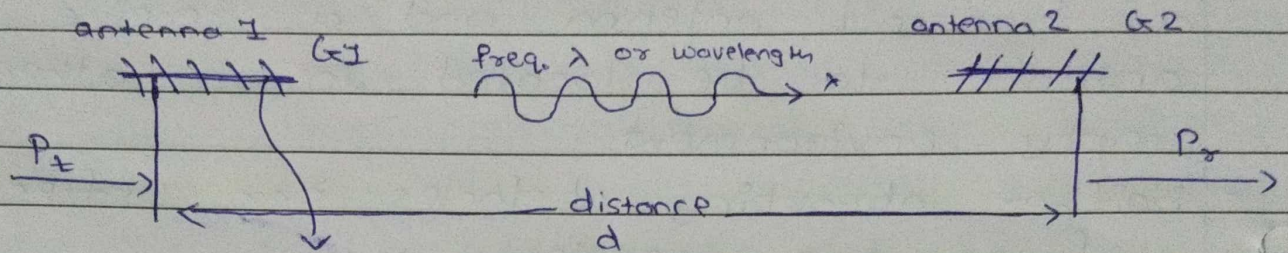 antenna 1 G1 freq. λ or wavelength antenna 2 G2
λ
Pt Pr
distance
d